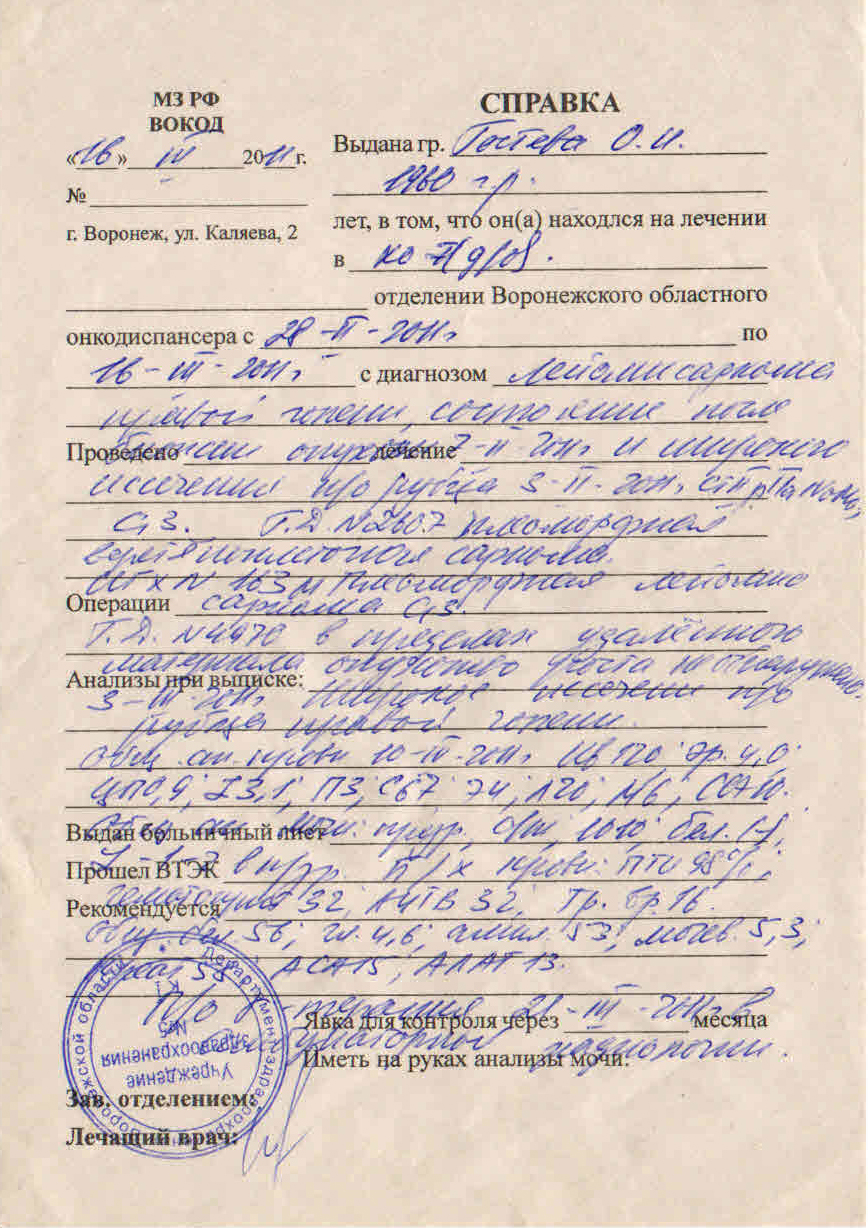 МЗ РФ
ВОКОД
«16» III 2011г.
№
г. Воронеж, ул. Каляева, 2
СПРАВКА
Выдана гр. Гостева О.И.
1960 г.р.
лет, в том, что он(а) находлся на лечении
в х/о
отделении Воронежского областного
онкодиспансера с 28-II-2011г по
16-III-2011г с диагнозом Лейомиосаркома
правой голени, состояние после
Проведено лечение
биопсии опухоли 2-II 2011г и широкого
иссечения п/о рубца 3-II-2011г
G3. Г.Д. N2607 плеоморфная
веретеноклеточная саркома.
ИГХ N 163 плеоморфная лейомио
Операции саркома G3.
Г.Д. N4970 в пределах удалённого
материала опухолевого роста не обнаружено
Анализы при выписке:
3-III-2011г широкое иссечение п/о
рубца правой голени.
Общ. ан. крови 10-III-2011г Нв 120; Эр. 4,0;
ЦП 0,9; Л 3,1; П3; С67; Э4; Л20; М6; СОЭ 10.
Выдан больничный лист
Общ. ан. мочи: 1010; бел. (-);
Прошел ВТЭК
в п/зр. Б/х крови: ПТИ 98%;
Рекомендуется
гематокрит 32; АЧТВ 32; Тр. вр. 16.
Общ. бел. 56; гл. 4,6; амил. 53; мочев. 5,3;
АСАТ 15; АЛАТ 13.
П/о 21-III-2011г в
Явка для контроля через месяца
радиологии.
Иметь на руках анализы мочи:
Зав. отделением:
Лечащий врач:
Учреждение
здравоохранения
№5